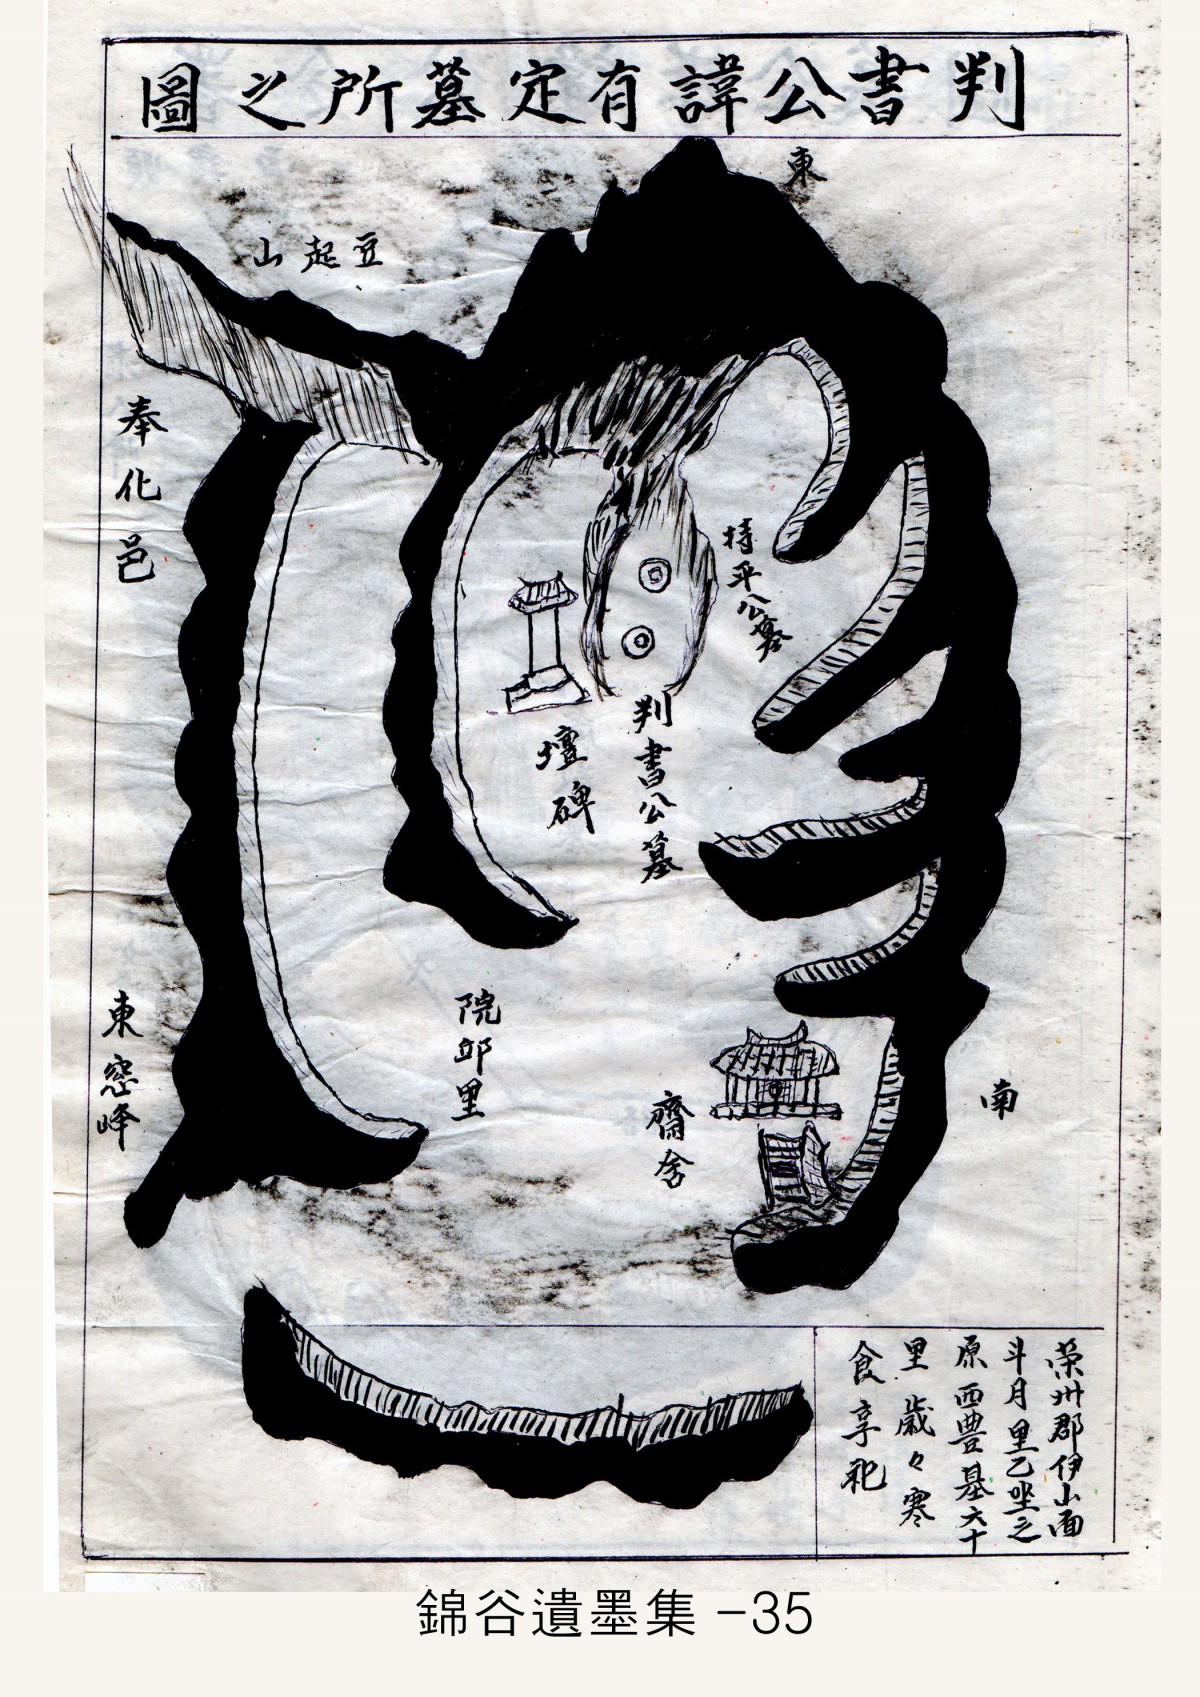 判書公諱有定墓所之圖
東
豆起山
奉化邑
持平公墓
判書公墓
壇碑
院邱里
東窓峰
齋舍
南
荣州郡伊山面
斗月里乙坐之
原西豊基六十
里歳々寒
食享祀
錦谷遺墨集 -35